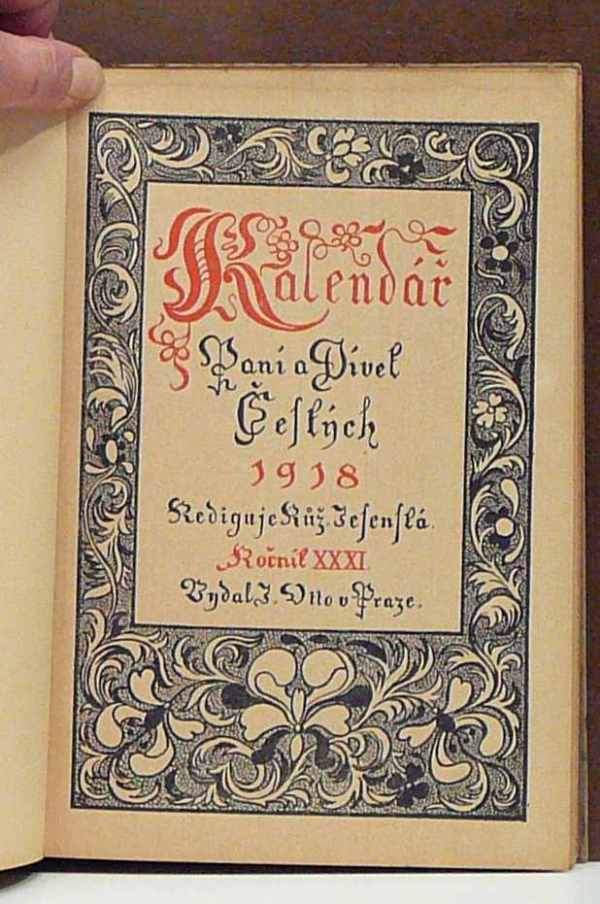 Kalendář
Paní a Dívek
Českých
1918
Rediguje Růž. Jesenská.
Ročník XXXI.
Vydal J. Otto v Praze.